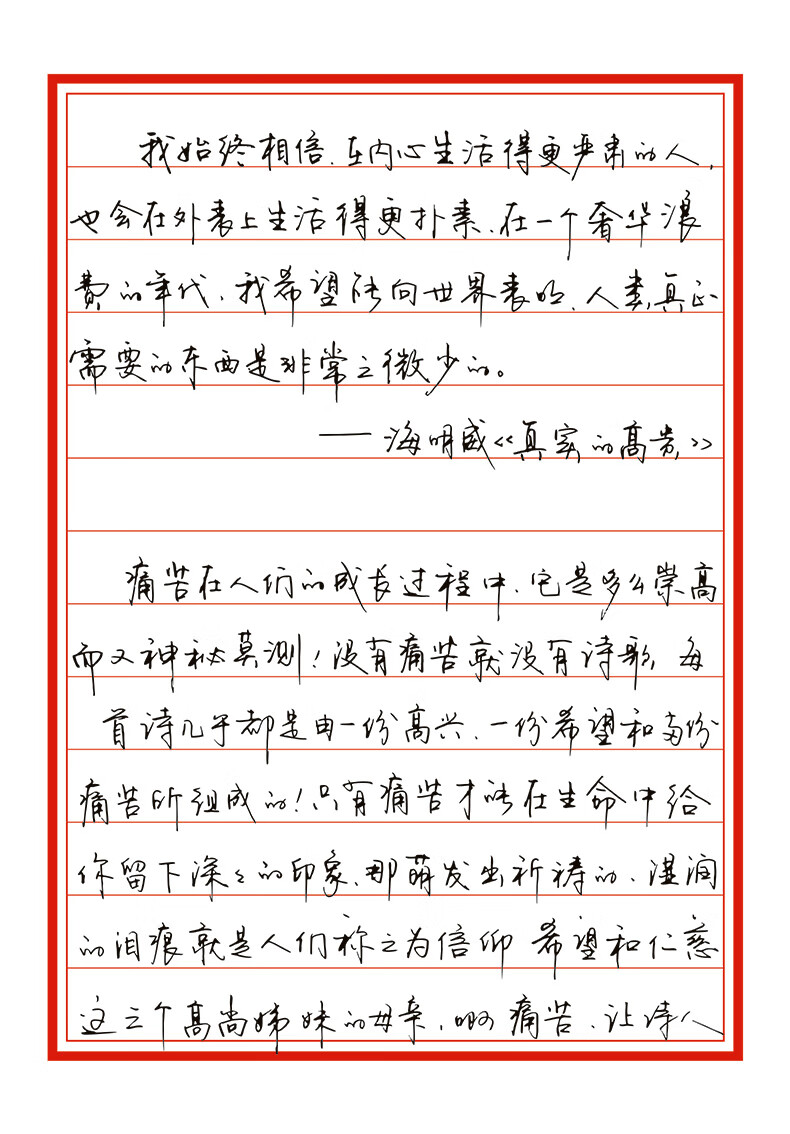 我始终相信、在内心生活得更严肃的人，
也会在外表上生活得更朴素、在一个奢华浪
费的年代、我希望能向世界表明、人类真正
需要的东西是非常之微少的。
——海明威《真实的高贵》
痛苦在人们的成长过程中、它是多么崇高
而又神秘莫测！没有痛苦就没有诗歌，每
首诗几乎都是由一份高兴、一份希望和两份
痛苦所组成的！只有痛苦才能在生命中给
你留下深々的印象、那萌发出祈祷的、湿润
的泪痕就是人们称之为信仰 希望和仁慈
这三个高尚姊妹的母亲，啊 痛苦、让诗人